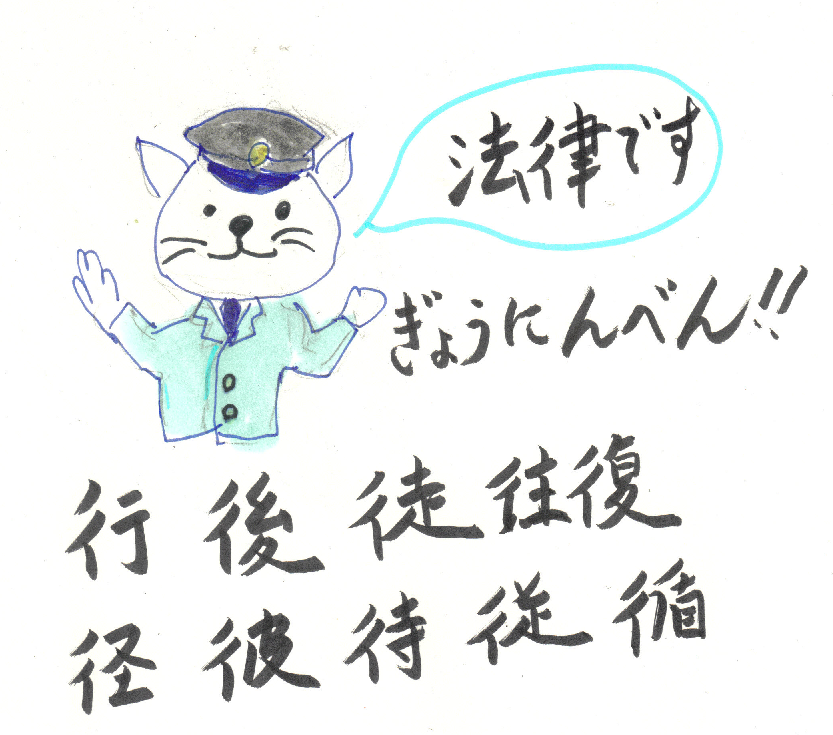 法律です
ぎょうにんべん!!
行 後 徒 往復
径 彼 待 従 循